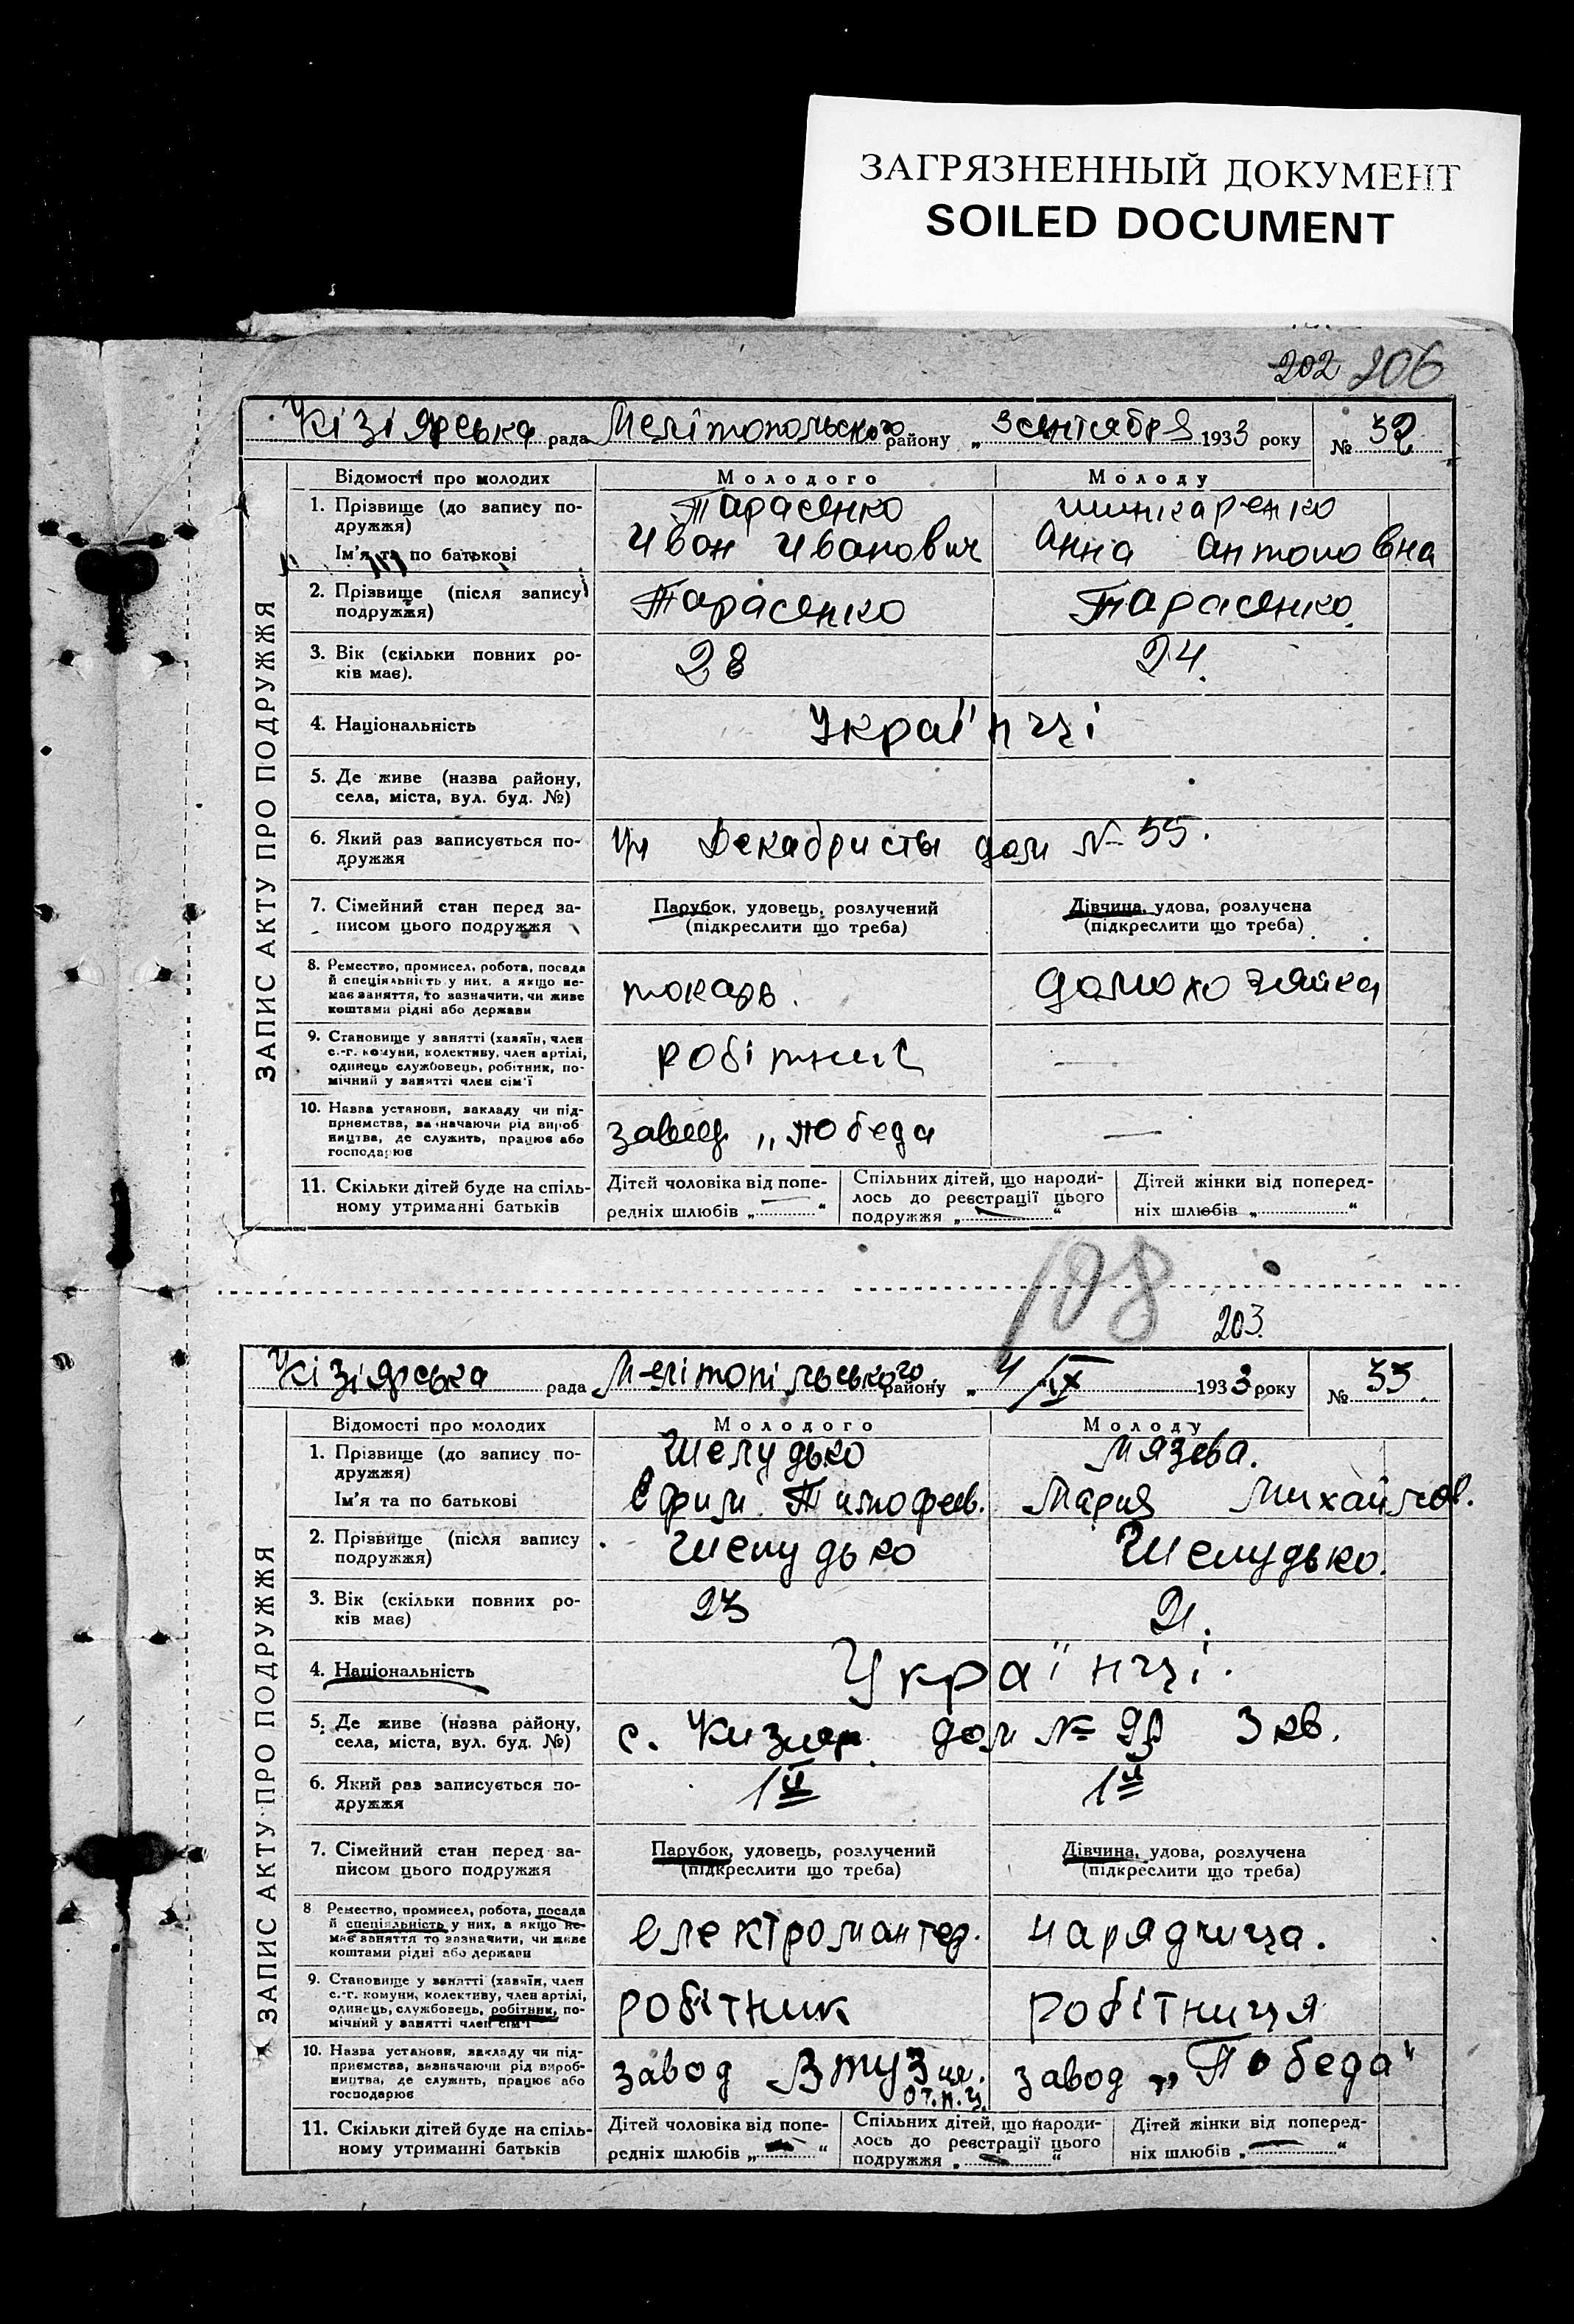 ЗАГРЯЗНЕННЫЙ ДОКУМЕНТ
SOILED DOCUMENT
202 206
Кізіярська рада Мелітопольского району „ 3 сентября 1933 року № 32
ЗАПИС АКТУ ПРО ПОДРУЖЖЯ
Відомості про молодих Молодого Молоду
1. Прізвище (до запису по- Тарасенко Шинкаренко
дружжя)
Ім'я та по батькові Иван Иванович Анна Антоновна
2. Прізвище (після запису Тарасенко Тарасенко
подружжя)
3. Вік (скільки повних ро- 28 24
ків має).
4. Національність Українці
5. Де живе (назва району,
села, міста, вул. буд. №)
6. Який раз записується по- Декабристы дом № 55.
дружжя
7. Сімейний стан перед за- Парубок, удовець, розлучений Дівчина, удова, розлучена
писом цього подружжя (підкреслити що треба) (підкреслити що треба)
8. Ремество, промисел, робота, посада
й спеціяльність у них, а якщо не- токарь. домохозяйка
має заняття, то зазначити, чи живе
коштами рідні або держави
9. Становище у занятті (хазяїн, член
с.-г. комуни, колективу, член артілі, робітник —
одинець службовець, робітник, по-
мічний у занятті член сім'ї
10. Назва установи, закладу чи під-
приємства, зазначаючи рід вироб- „Победа —
ництва, де служить, працює або
господарює
11. Скільки дітей буде на спіль- Дітей чоловіка від попе- Спільних дітей, що народи- Дітей жінки від поперед-
ному утриманні батьків редніх шлюбів „ — “ лось до реєстрації цього ніх шлюбів „ “
подружжя „ — “
108
203
Кізіярська рада Мелітопільського району „ 4/IX 1933 року № 33
ЗАПИС АКТУ ПРО ПОДРУЖЖЯ
Відомості про молодих Молодого Молоду
1. Прізвище (до запису по- Шелудько Мязева.
дружжя)
Ім'я та по батькові Ефим Тимофеев. Мария Михайлов.
2. Прізвище (після запису Шелудько Шелудько.
подружжя)
3. Вік (скільки повних ро- 23 21.
ків має)
4. Національність Українці.
5. Де живе (назва району, с. Кизияр. дом № 3 кв.
села, міста, вул. буд. №)
6. Який раз записується по- 1й 1й
дружжя
7. Сімейний стан перед за- Парубок, удовець, розлучений Дівчина, удова, розлучена
писом цього подружжя (підкреслити що треба) (підкреслити що треба)
8 Ремество, промисел, робота, посада
й спеціяльність у них, а якщо не- електромантер. нарядчица.
має заняття то зазначити, чи живе
коштами рідні або держави
9. Становище у занятті (хазяїн, член
с.-г. комуни, колективу, член артілі, робітник робітниця
одинець, службовець, робітник, по-
мічний у занятті член сім'ї
10. Назва установи, закладу чи під-
приємства, зазначаючи рід вироб- завод завод „Победа“
ництва, де служить, працює або
господарює
11. Скільки дітей буде на спіль- Дітей чоловіка від попе- Спільних дітей, що народи- Дітей жінки від поперед-
ному утриманні батьків редніх шлюбів „ — “ лось до реєстрації цього ніх шлюбів „ — “
подружжя „ — “